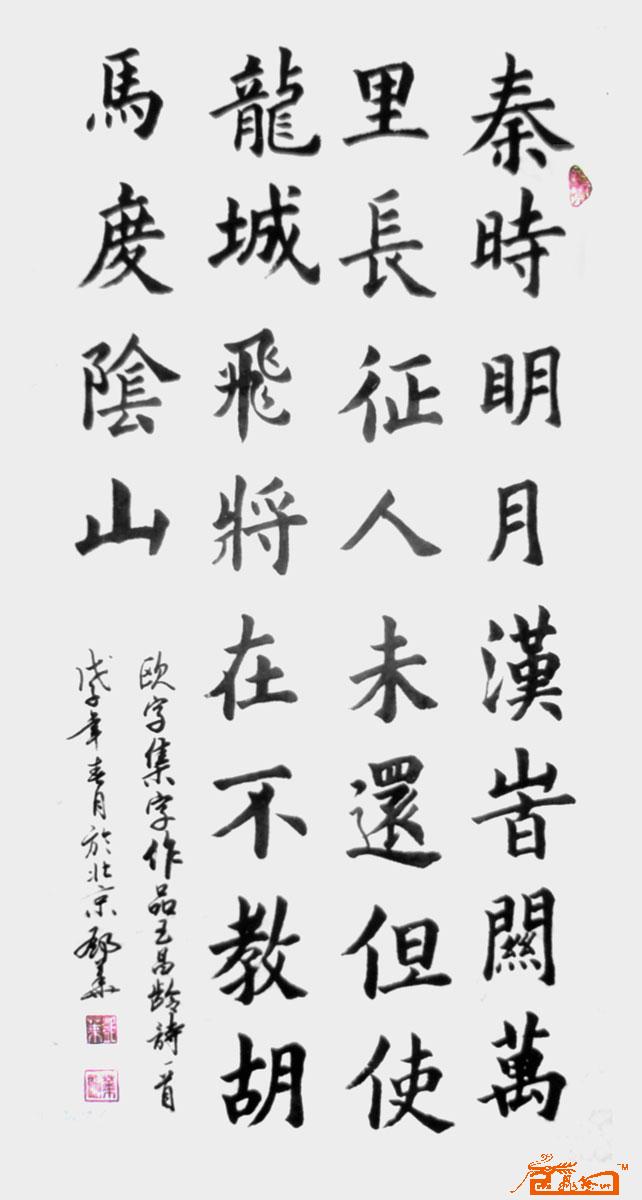 秦時明月漢旹關萬
里長征人未還但使
龍城飛將在不教胡
馬度陰山
欧字集字作品王昌龄詩一首
戊子年春月於北京